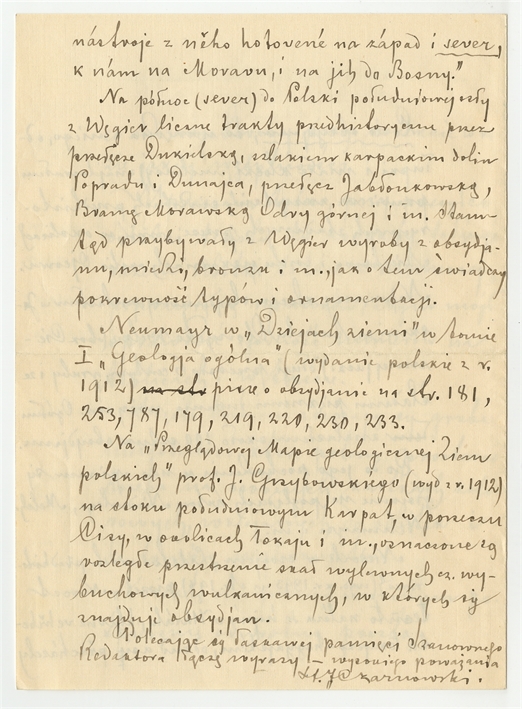 nástroje z něho hotovené na západ i sever,
k nám na Moravu, i na jih do Bosny."
Na północ (sever) do Polski południowej szły
z Węgier liczne trakty przedhistoryczne przez
przełęcze Dukielską, szlakiem karpackim dolin
Popradu i Dunajca, przełęcz Jabłonkowską,
Bramę Morawską Odry górnej i in. Stam-
tąd przybywały z Węgier wyroby z obsydja-
nu, miedzi, bronzu i in., jak o tem świadczy
pokrewność typów i ornamentacji.
Neumayr w „Dziejach ziemi" w tomie
I „Geologja ogólna" (wydanie polskie z r.
1912) na str pisze o obsydjanie na str. 181,
253, 787, 179, 219, 220, 230, 233.
Na „Przeglądowej Mapie geologicznej Ziem
polskich" prof. J. Grzybowskiego (wyd z r. 1912)
na stoku południowym Karpat, w porzeczu
Cisy, w okolicach Tokaju i in., oznaczone są
rozległe przestrzenie skał wylewnych cz. wy-
buchowych wulkanicznych, w których się
znajduje obsydjan.
Polecając się łaskawej pamięci Szanownego
Redaktora łączę wyrazy wysokiego poważania
St. J. Czarnowski.